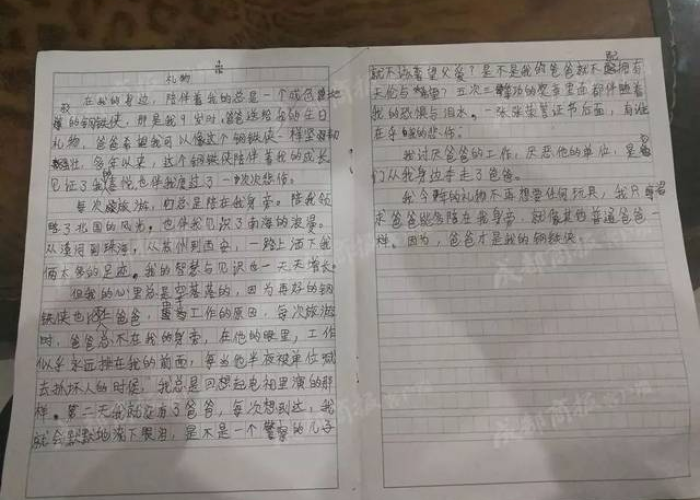 礼物
在我的身边，陪伴着我的总是一个咸色
的钢铁侠，那是我9岁时，爸爸送给我的生日
礼物。爸爸希望我可以像这个钢铁侠一样坚
强。多年以来，这个钢铁侠陪伴着我的成长
见证了我的喜悦，也伴我度过了一次次悲伤。
每次旅游，他总是陪在我身旁。陪我领
略了北国的风光，也伴我见识了南海的浪漫。
从漠河到珠海，从苏州到西安，一路上洒下我
俩太多的足迹。我的智慧与见识也一天天增长。
但我的心里总是空落落的，因为再好的钢
铁侠也不是爸爸，因为工作的原因，每次旅游
时，爸爸总不在我的身旁，在他的眼里，工作
似乎永远排在我的前面，每当他半夜被单位喊
去抓坏人的时候，我总是回想起电视里演的那
样。第二天我就没有了爸爸，每次想到这，我
就会默默地流下眼泪，是不是一个警察的儿子
就不该奢望父爱？是不是我的爸爸就不配拥有
天伦与
我的恐惧与泪水。一张张荣誉证书后面，有谁
在乎我的悲伤。
我讨厌爸爸的工作，厌恶他的单位，是他
们从我身边夺走了爸爸。
我今年的礼物不再想要任何玩具，我只
求爸爸能多陪在我身旁，就像其他普通爸爸一
样。因为，爸爸才是我的钢铁侠。
成都商报